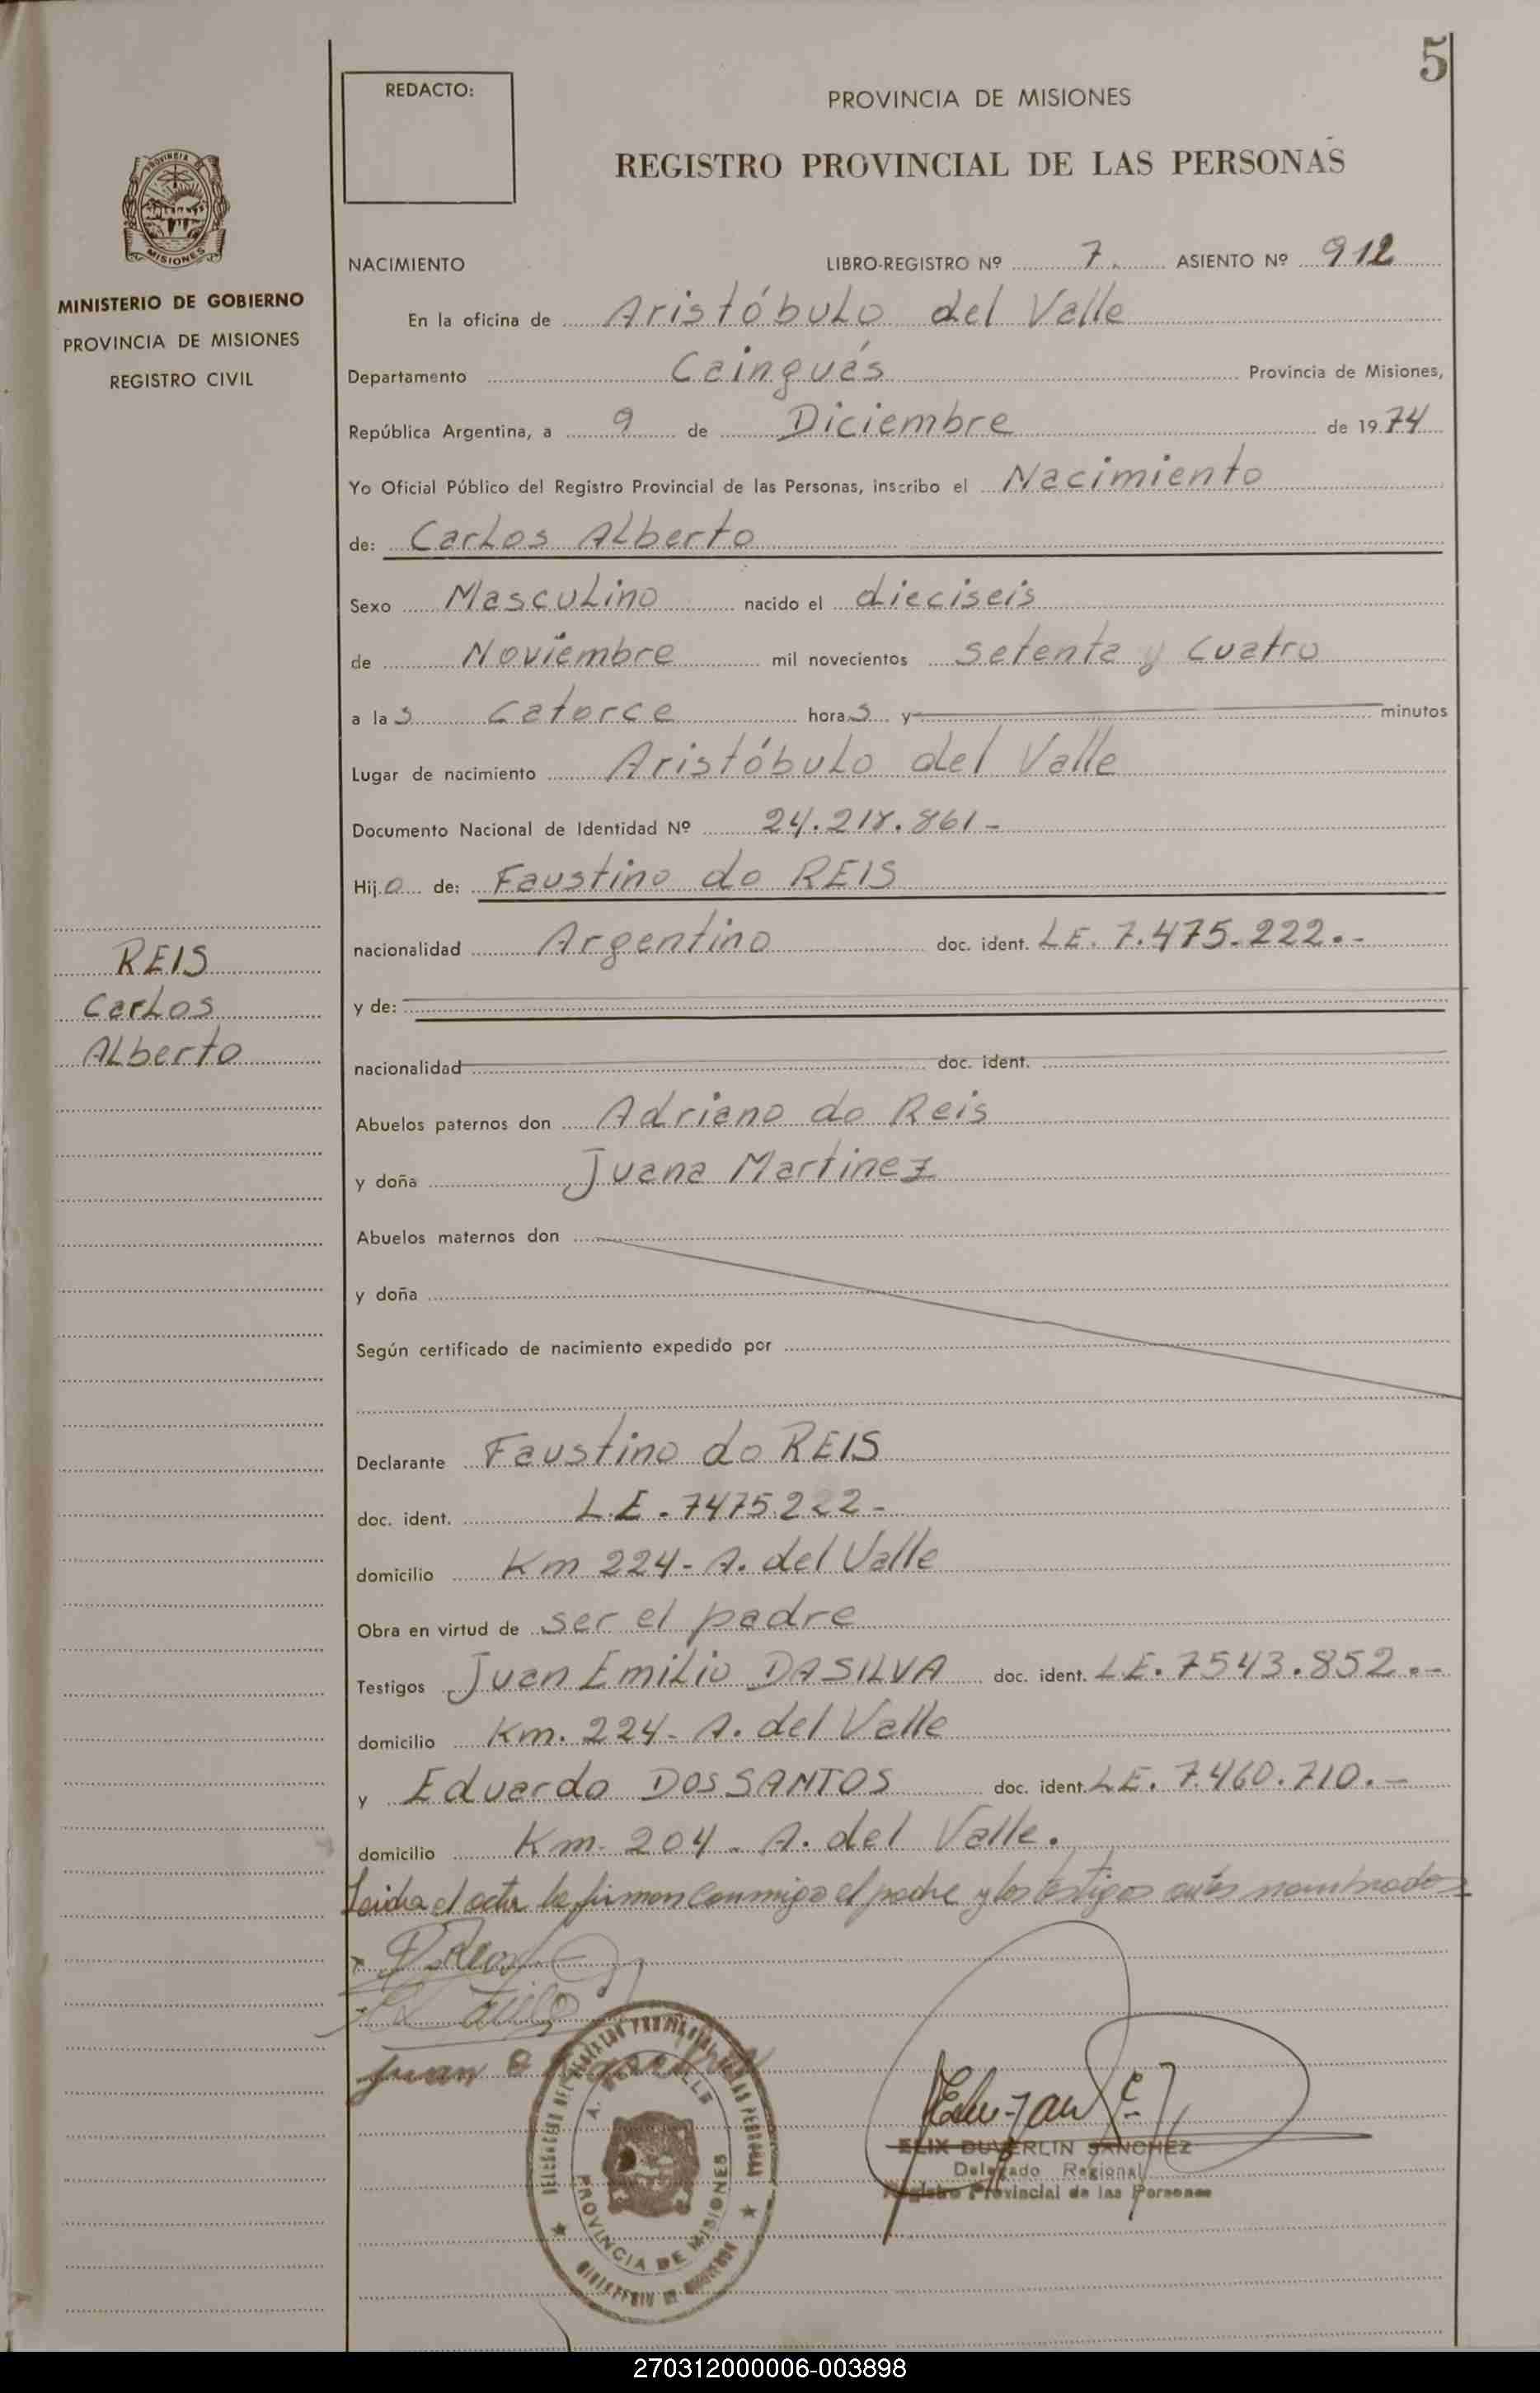 5
REDACTO:
PROVINCIA DE MISIONES
REGISTRO PROVINCIAL DE LAS PERSONAS
PROVINCIA DE
MISIONES
MINISTERIO DE GOBIERNO
PROVINCIA DE MISIONES
REGISTRO CIVIL
NACIMIENTO LIBRO-REGISTRO Nº 7. ASIENTO Nº 912
En la oficina de Aristóbulo del Valle
Departamento Cainguás Provincia de Misiones,
República Argentina, a 9 de Diciembre de 1974
Yo Oficial Público del Registro Provincial de las Personas, inscribo el Nacimiento
de: Carlos Alberto
Sexo Masculino nacido el dieciseis
de Noviembre mil novecientos setenta y cuatro
a las catorce horas y minutos
Lugar de nacimiento Aristóbulo del Valle
Documento Nacional de Identidad Nº 24.218.861-
Hijo de: Faustino do REIS
nacionalidad Argentino doc. ident. LE. 7.475.222.-
REIS
Carlos
Alberto
y de:
nacionalidad doc. ident.
Abuelos paternos don Adriano do Reis
y doña Juana Martinez
Abuelos maternos don
y doña
Según certificado de nacimiento expedido por
Declarante Faustino do REIS
doc. ident. L.E. 7475222-
domicilio Km 224- A. del Valle
Obra en virtud de ser el padre
Testigos Juan Emilio DASILVA doc. ident. LE. 7543.852.-
domicilio Km. 224- A. del Valle
y Eduardo DOS SANTOS doc. ident. LE. 7.460.710.-
domicilio Km. 204- A. del Valle.
Leida el acta la firman conmigo el padre y los testigos antes nombrados
Juan E
ELIX DUVERLIN SANCHEZ
Delegado Regional
Registro Provincial de las Personas
PROVINCIA DE MISIONES
270312000006-003898